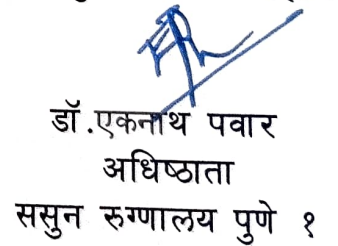 डॉ.एकनाथ पवार
अधिष्ठाता
ससुन रुग्णालय पुणे १